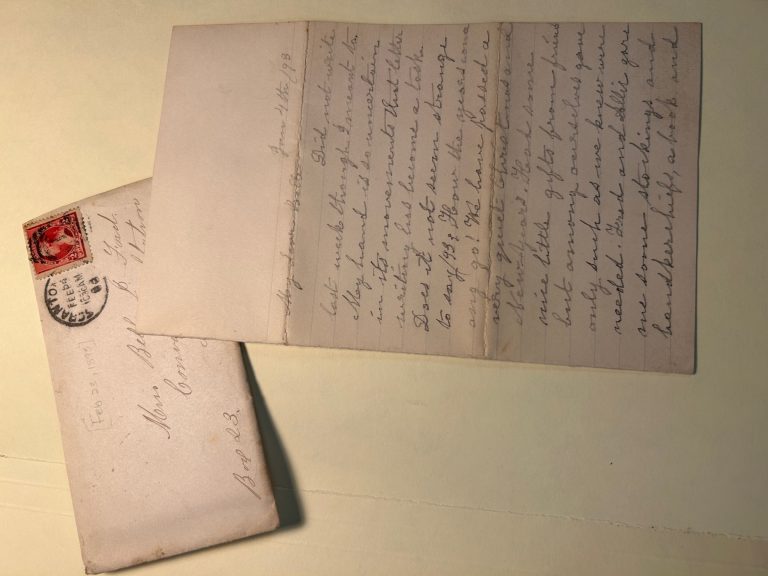 Jan 4th/93
My Dear Belle
Did not write
last week though I meant to.
My hand is so uncertain
in its movements that letter
writing has become a task.
Does it not seem strange
to say/93? How the years come
and go! We have passed a
very quiet Christmas and
New-Years. Had some
nice little gifts from friends
but among ourselves gave
only such as we knew were
needed. Fred and Allie gave
me some stockings and
handkerchiefs, a book and
SCRANTON
FEB
10 AM
93
Miss Bell B. Ford.
Box 23.
[Feb 23, 1893]